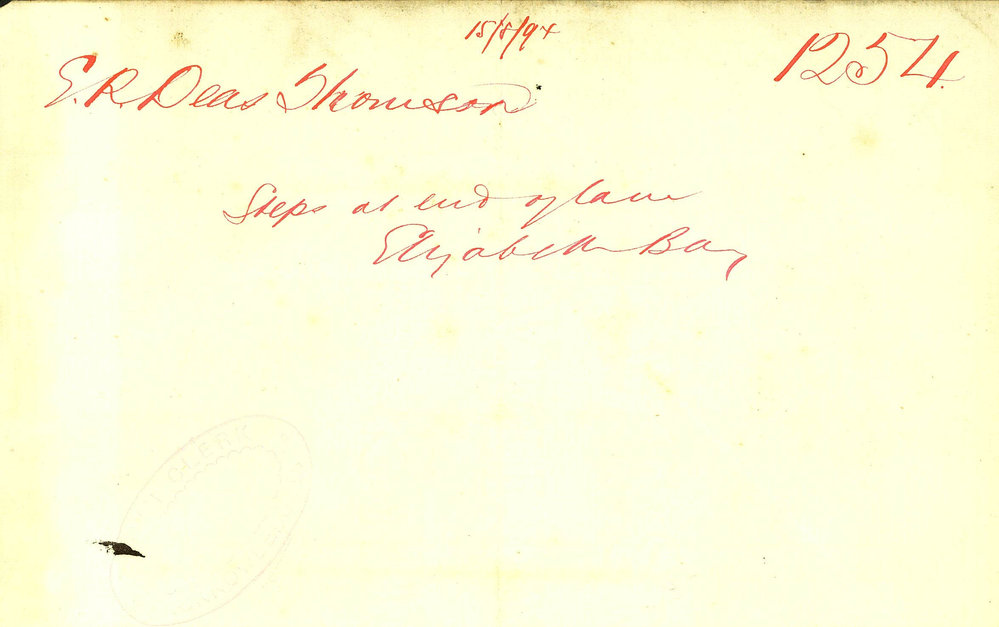 15/8/94
1254.
E. R. Deas Thomson
Steps at end of lane
Elizabeth Bay
CLERK